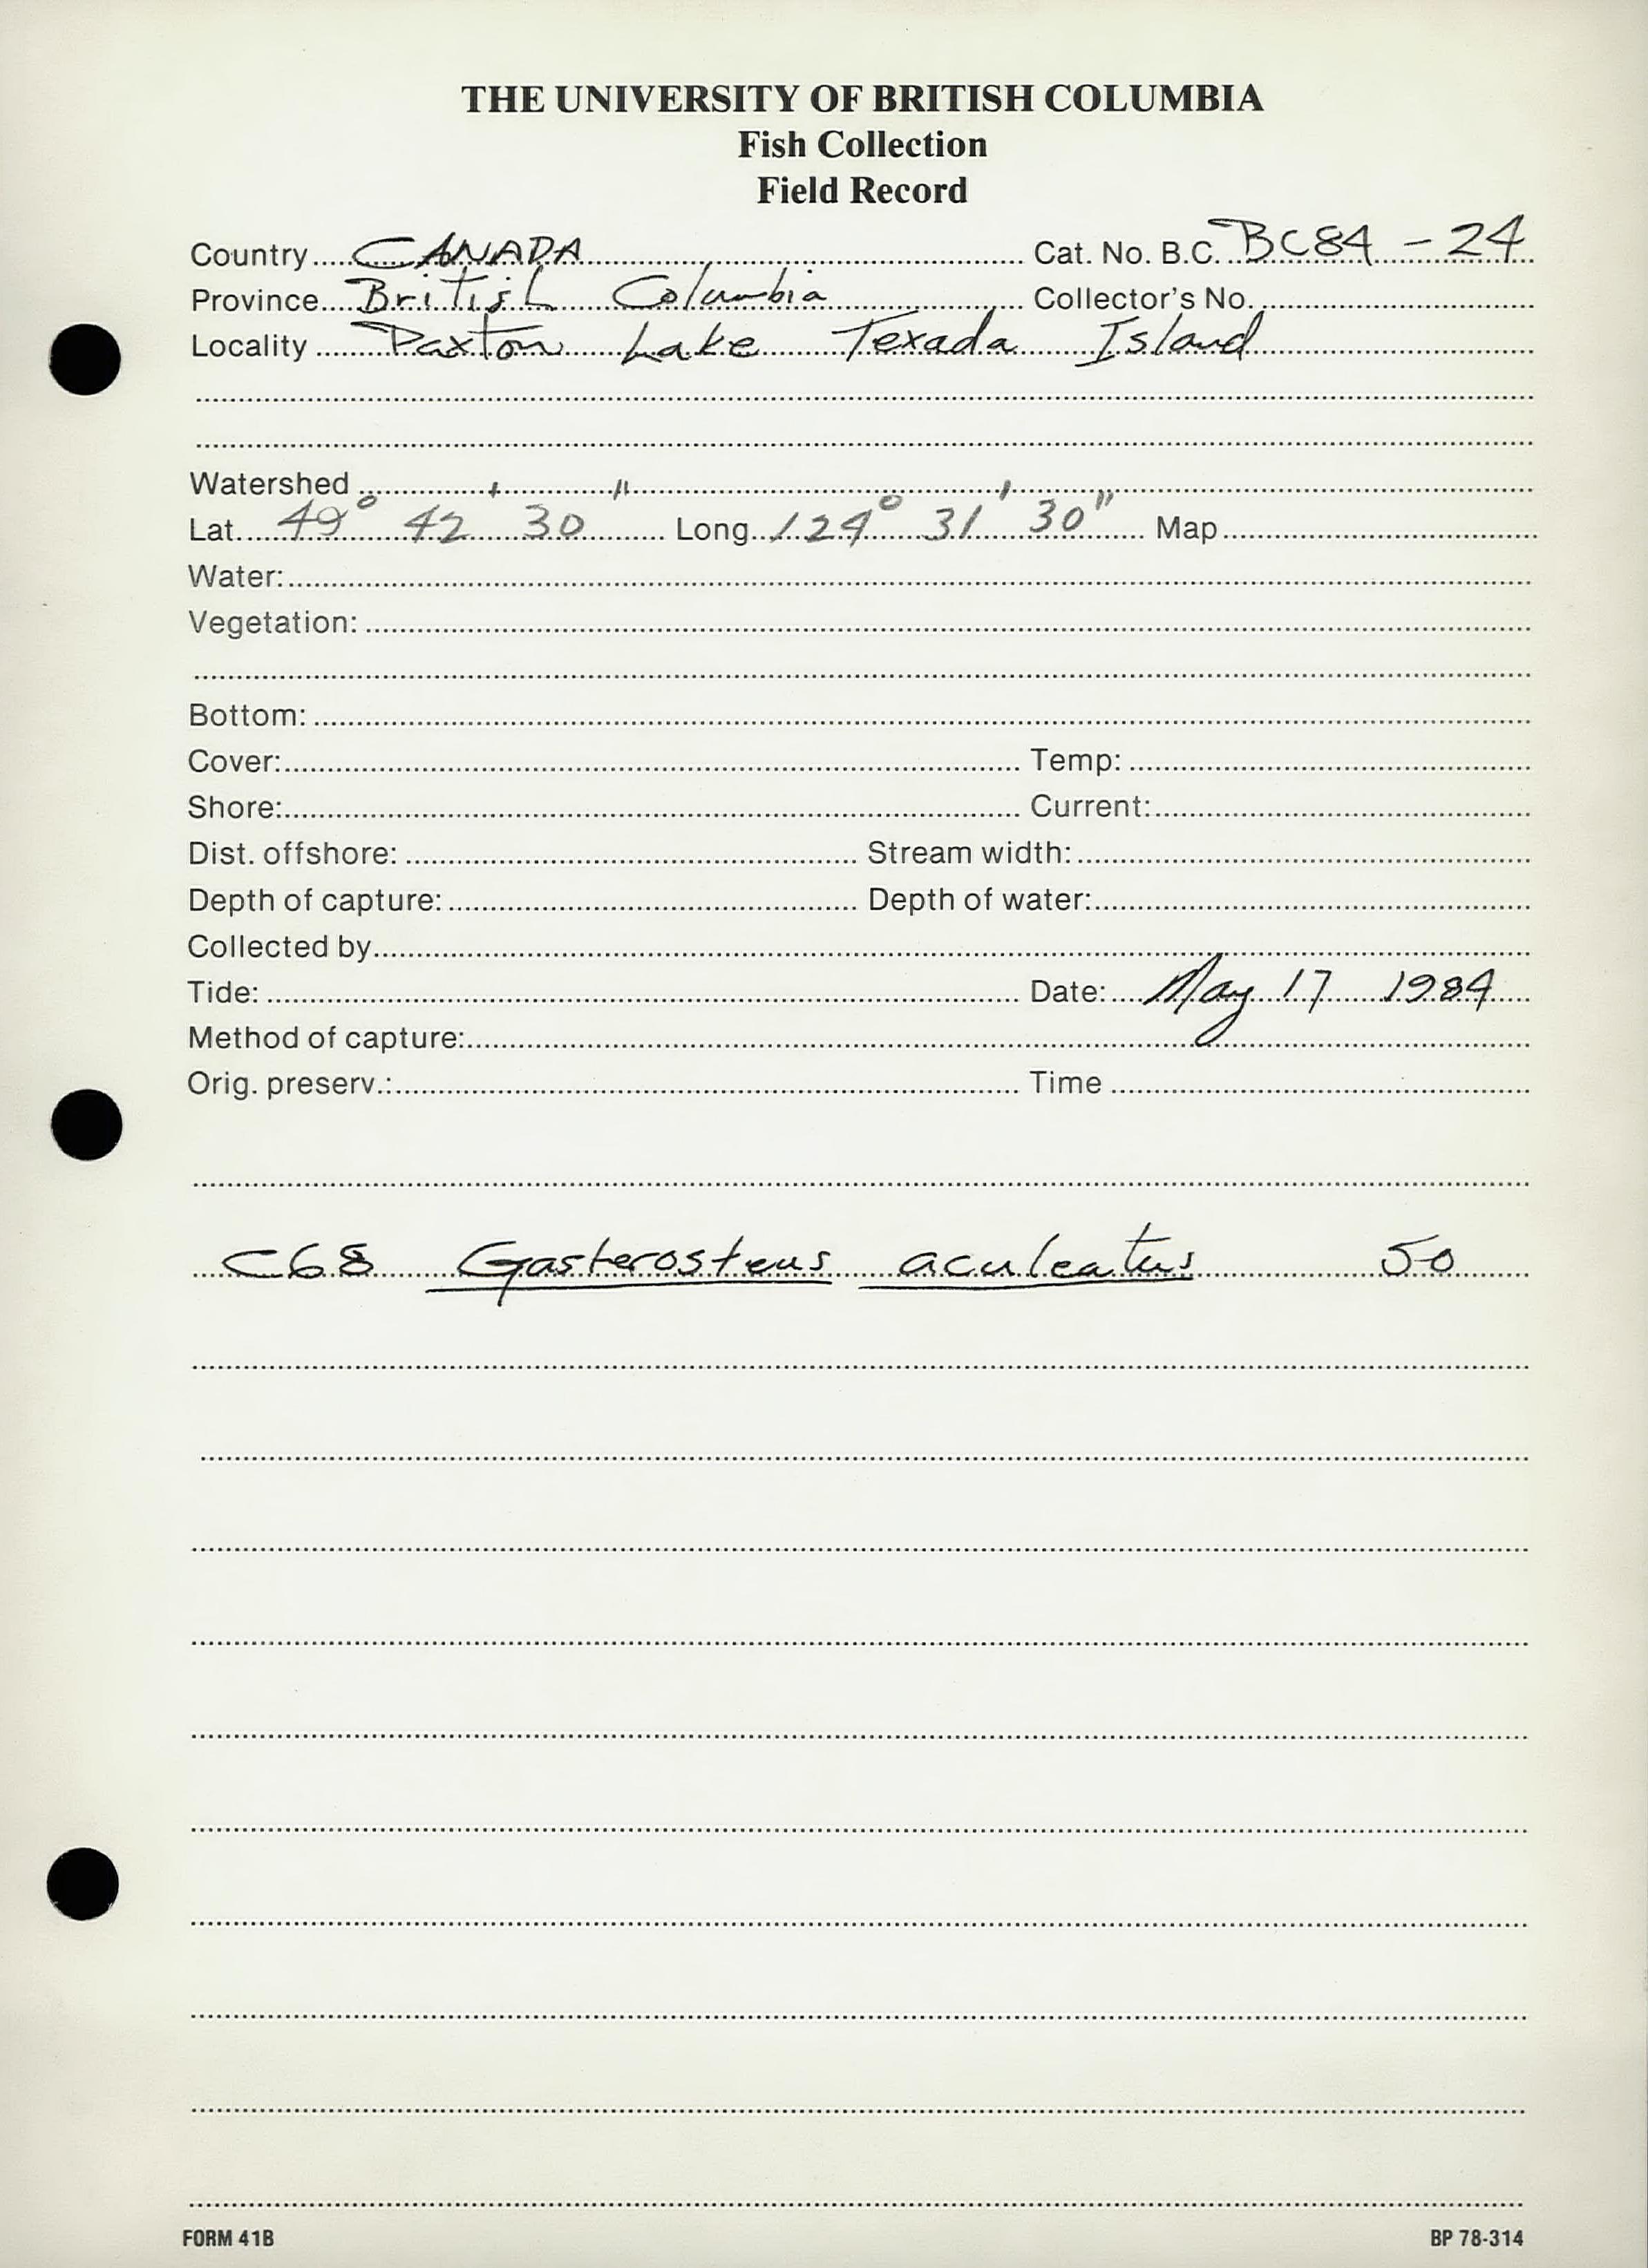 THE UNIVERSITY OF BRITISH COLUMBIA
Fish Collection
Field Record
Country CANADA Cat. No. B.C. BC84-24
Province British Columbia Collector's No.
Locality Paxton Lake Texada Island
Watershed
Lat. 49° 42' 30" Long. 124° 31' 30" Map
Water:
Vegetation:
Bottom:
Cover: Temp:
Shore: Current:
Dist. offshore: Stream width:
Depth of capture: Depth of water:
Collected by
Tide: Date: May 17 1984
Method of capture:
Orig. preserv.: Time
C68 Gasterosteus aculeatus 50
FORM 41B BP 78-314